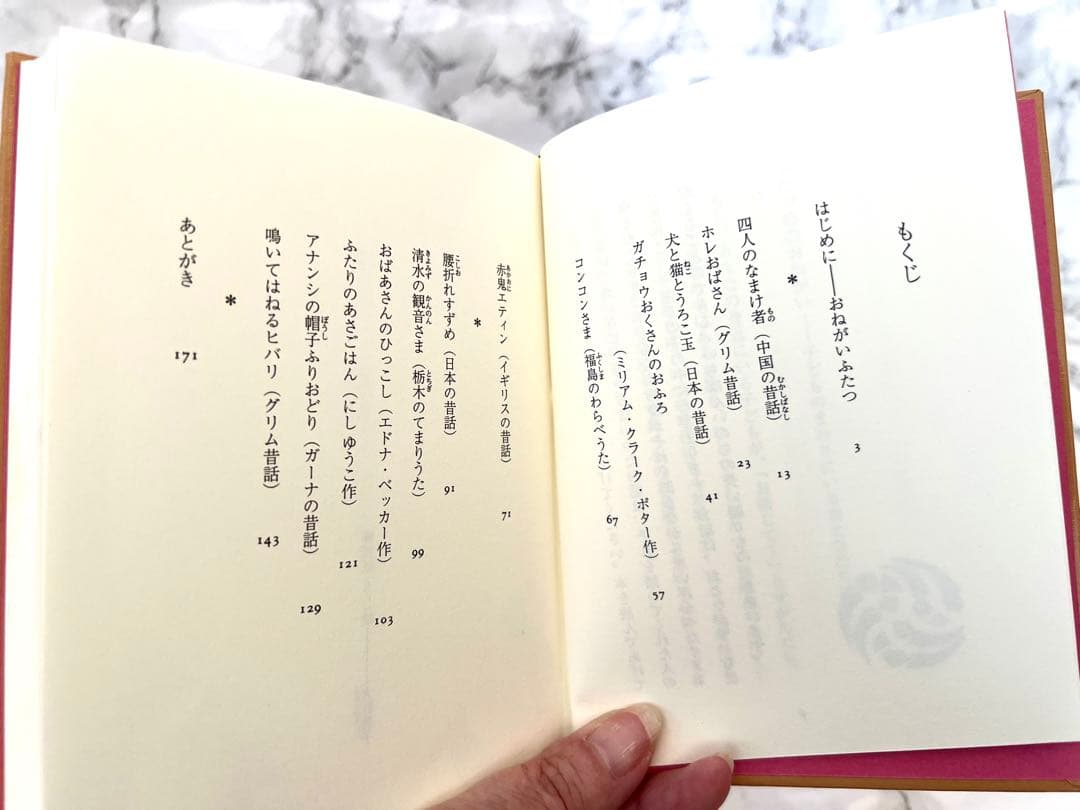 もくじ
はじめに――おねがいふたつ 3
*
四人のなまけ者(中国の昔話) 13
ホレおばさん(グリム昔話) 23
犬と猫とうろこ玉(日本の昔話) 41
ガチョウおくさんのおふろ
(ミリアム・クラーク・ポター作) 57
コンコンさま(福島のわらべうた) 67
赤鬼エティン(イギリスの昔話) 71
*
腰折れすずめ(日本の昔話) 91
清水の観音さま(栃木のてまりうた) 99
おばあさんのひっこし(エドナ・ベッカー作) 103
ふたりのあさごはん(にしゆうこ作) 121
アナンシの帽子ふりおどり(ガーナの昔話) 129
鳴いてはねるヒバリ(グリム昔話) 143
*
あとがき 171